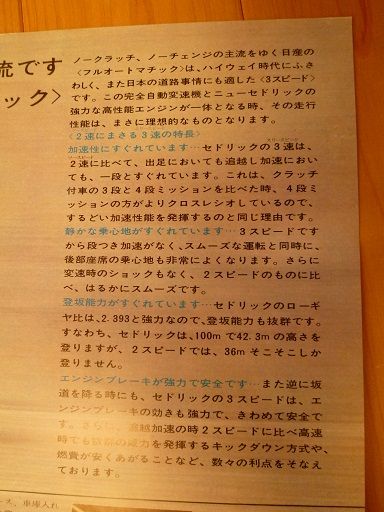 流です
ック〉
ノークラッチ、ノーチェンジの主流をゆく日産の
〈フルオートマチック〉は、ハイウェイ時代にふさ
わしく、また日本の道路事情にも適した〈3スピード〉
です。この完全自動変速機とニューセドリックの
強力な高性能エンジンが一体となる時、その走行
性能は、まさに理想的なものとなります。
〈2速にまさる3速の特長〉
加速性にすぐれています…セドリックの3速は、
2速に比べて、出足においても追越し加速におい
ても、一段とすぐれています。これは、クラッチ
付車の3段と4段ミッションを比べた時、4段ミ
ッションの方がよりクロスレシオしているので、
するどい加速性能を発揮するのと同じ理由です。
静かな乗心地がすぐれています…3スピードです
から段つき加速がなく、スムーズな運転と同時に、
後部座席の乗心地も非常によくなります。さらに
変速時のショックもなく、2スピードのものに比
べ、はるかにスムーズです。
登坂能力がすぐれています…セドリックのローギ
ヤ比は、2.393と強力なので、登坂能力も抜群です。
すなわち、セドリックは、100mで42.3mの高さを
登りますが、2スピードでは、36mそこそこしか
登りません。
エンジンブレーキが強力で安全です…また逆に坂
道を降る時にも、セドリックの3スピードは、エ
ンジンブレーキの効きも強力で、きわめて安全で
す。さらに、追越加速の時2スピードに比べ高速
時でも抜群の威力を発揮するキックダウン方式や、
燃費が安くあがることなど、数々の利点をそなえ
ております。
ース、車庫入れ